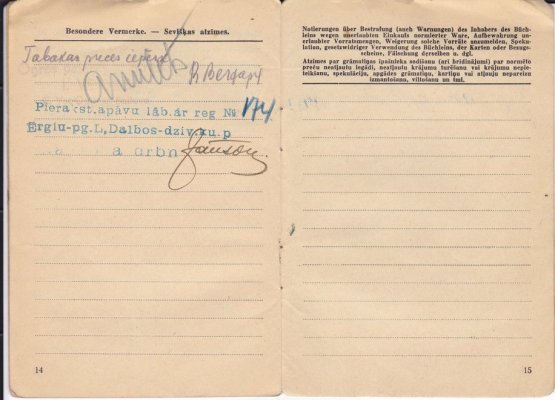 Besondere Vermerke. — Sevišķas atzīmes.
Tabakas preces
Pierakst.apāvu lāb.ar reg № 174
Ergļu-pg.L,Dalbos-dziv.ku.p
14
Notierungen über Bestrafung (auch Warnungen) des Inhabers des Büch-
leins wegen unerlaubten Einkaufs normierter Ware, Aufbewahrung un-
erlaubter Vorratsmengen, Weigerung solche Vorräte anzumelden, Speku-
lation, gesetzwidriger Verwendung des Büchleins, der Karten oder Bezugs-
scheine, Fälschung derselben u. dgl.
Atzīmes par grāmatiņas īpašnieka sodīšanu (arī brīdinājumi) par normēto
preču neatļautu iegādi, neatļautu krājumu turēšanu vai krājumu nepie-
teikšanu, spekulāciju, apgādes grāmatiņu, kartiņu vai atļauju nepareizu
izmantošanu, viltošanu un tml.
15